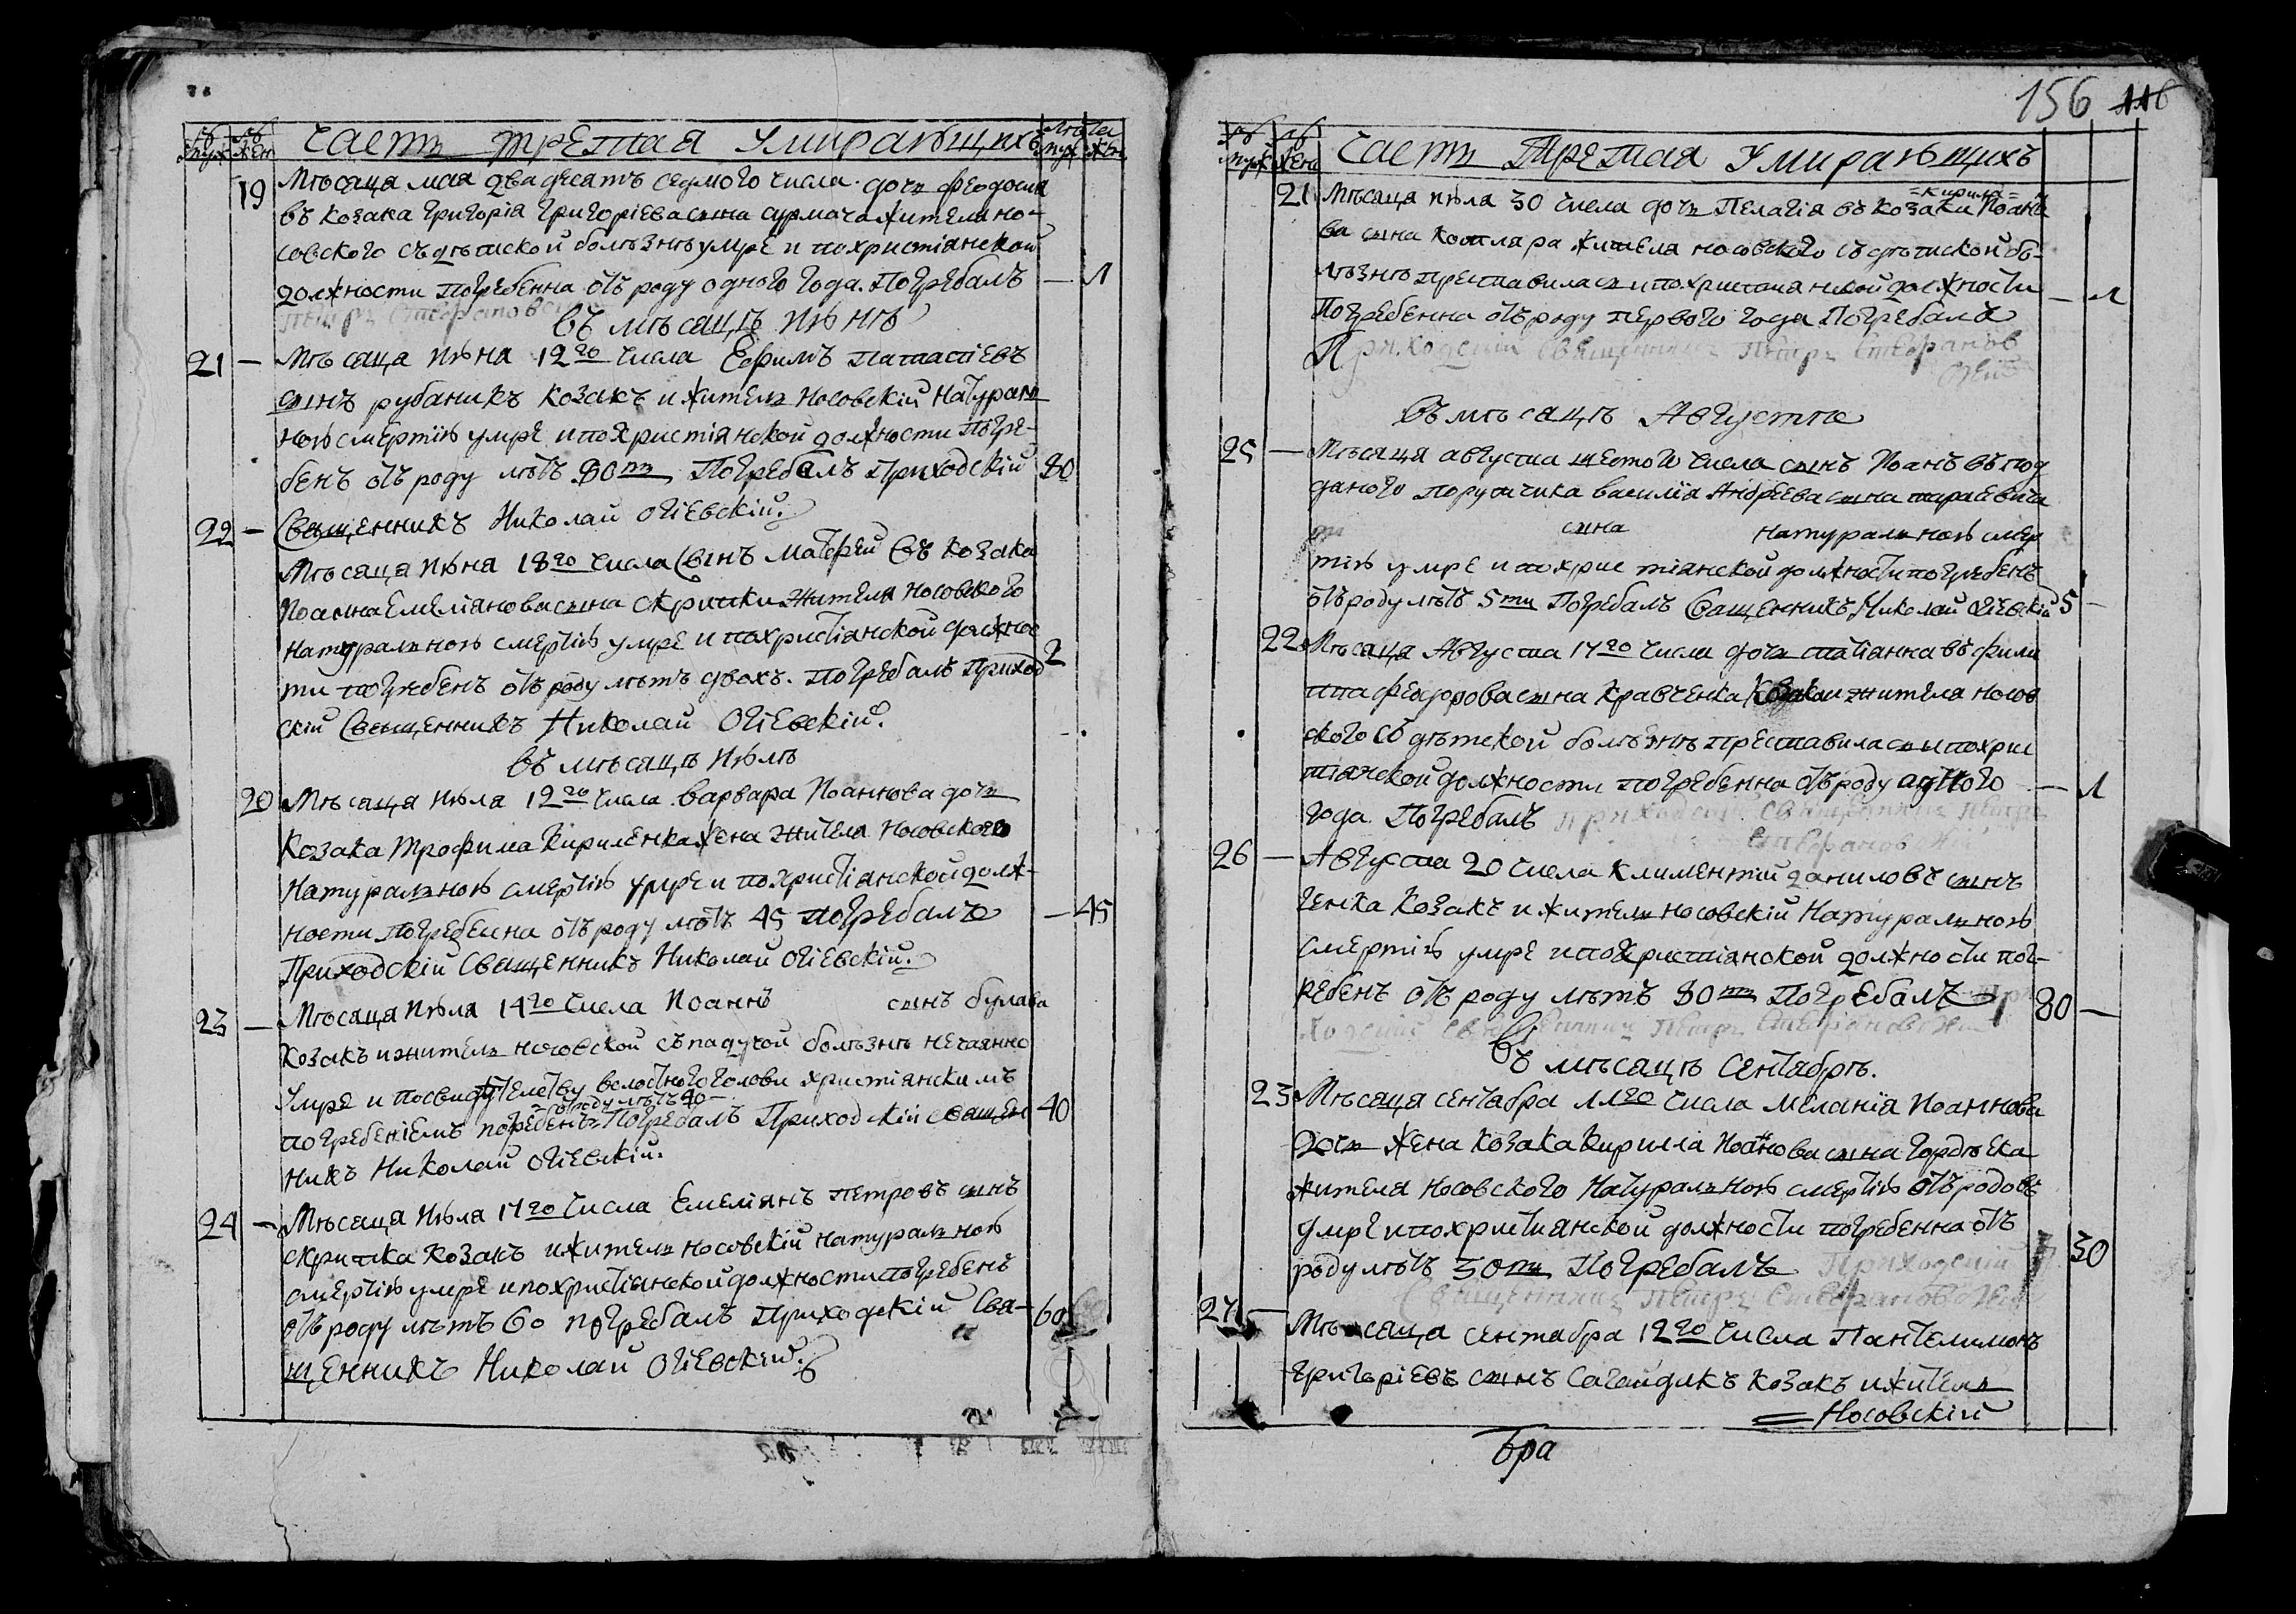 Часть третая Умирающихъ
19 Мѣсаца мая двадесатъ седмого числа дочь Феодосия
въ козака Григорія Григоріева сына сурмача жителя но-
совского съ дѣтиской болѣзнѣ умре и похристіанской
должности погребенна отъ роду одного года. Погребалъ — 1
Петръ Стефановскій
Въ мѣсацѣ июнѣ
21 — Мѣсаца июна 12го числа Ефимъ
сынъ рубаникъ козакъ и житель Носовскій натураль
ною смертію умре и похристіанской должности погре-
бенъ отъ роду лѣтъ 80ть Погребалъ Приходскій 80
22 — Священникъ Николай Огіевскій.
Мѣсаца июна 18го числа Сынъ Матфей въ козака
Иоанна Емеліянова сына скрипки жителя носовского
натуральною смертію умре и похристіанской должнос
ти погребенъ отъ роду лѣтъ двохъ. Погребалъ Приход 2
скій Священникъ Николай Огіевскій.
Въ мѣсацѣ июлѣ
20 Мѣсаца июля 12го числа Варвара Иоаннова дочь
Козака Трофима Кириленка жена жителя Носовского
Натуральною смертію умре и похристіанской долж-
ности погребенна отъ роду лѣтъ 45 погребалъ — 45
Приходскій Священникъ Николай Огіевскій.
23 — Мѣсаца июля 14го числа Иоаннъ сынъ булава
козакъ и житель носовской съ падучой болѣзнѣ нечаянно
Умре и посвидѣтелству волостного голови христіанскимъ
= отъ роду лѣтъ 40 =
погребеніемъ погребенъ Погребалъ Приходскій священ 40
никъ Николай Огіевскій.
24 — Мѣсаца июля 17го числа Емеліянъ Петровъ сынъ
скрипка козакъ и житель носовскій натуральною
смертію умре и похристіанской должности погребенъ
отъ роду лѣтъ 60 погребалъ Приходскій Свя- 60
щенникъ Николай Огіевскій.
156 116
Часть Третая Умирающихъ
= Кирила =
21 Мѣсаца июла 30 числа дочь Пелагія въ козаки Иоано
ва сына Котлара жителя носовского съ дѣтиской бо-
лѣзнѣ преставилась и похристианской должности — 1
Погребенна отъ роду первого года Погребалъ
Приходскій Священникъ Петръ Стефановскій
Въ мѣсацѣ Августѣ
25 — Мѣсаца августа шестого числа сынъ Иоанъ въ под
даного поручика василія Андреева сына тараевича
сына натуральною смер
тію умре и похристіанской должности погребенъ
отъ роду лѣтъ 5ти Погребалъ Священникъ Николай Огіевскій 5 —
22 Мѣсаца Августа 17го числа дочь татіанна въ фили
ппа Феодорова сына Кравченка козака жителя носов
ского съ дѣтской болѣзнѣ преставилась и похрис
тіанской должности погребенна отъ роду одного — 1
года Погребалъ приходскій Священникъ Петръ
Стефановскій
26 — Августа 20 числа Климентій даниловъ сынъ
Козакъ и житель носовскій Натуральною
смертію умре и похристіанской должности пог-
ребенъ отъ роду лѣтъ 80ть Погребалъ При 80 —
ходскій Священникъ Петръ Стефановскій
Въ мѣсацѣ Сентабрѣ.
23 Мѣсаца сентабра 11го числа Меланіа Иоаннова
дочь жена козака Кирилла Иоанова сына Гордѣека
жителя Носовского Натуральною смертію отъ родовъ
умре и похристианской должности погребенна отъ
роду лѣтъ 30ти Погребалъ Приходскій 30
Священникъ Петръ Стефановскій
27 — Мѣсаца сентабра 12го числа Пантелимонъ
Григоріевъ сынъ Сагайдакъ козакъ и житель
= Носовскій
бра